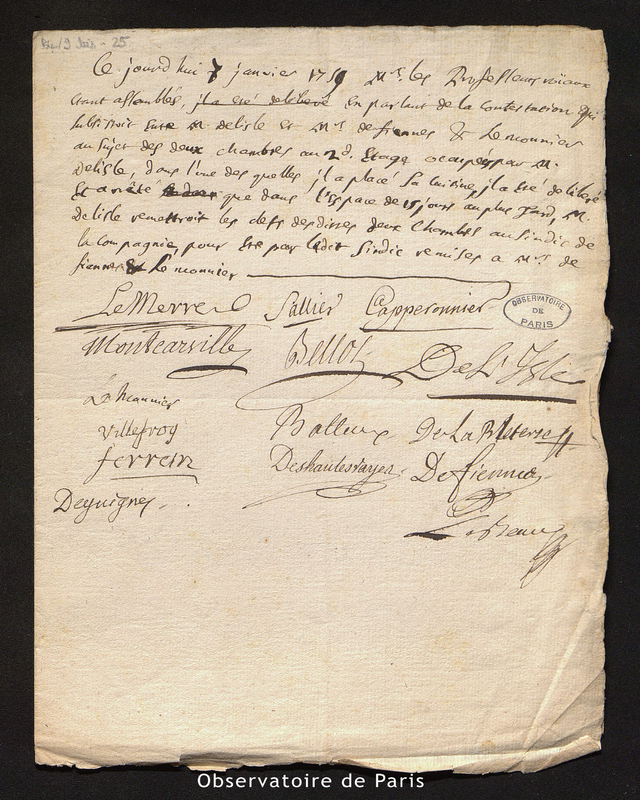 Ce jourdhui 7 janvier 1759 Mrs. les Professeurs roiaux
etant assemblés, jl a eté deliberé en parlant de la contestation qui
subsistoit entre M. delisle et Mrs. de fiennes & Le monnier
au sujet des deux chambres au 2d. Etage occupées par M.
Delisle, dans l'une des quelles jl a placé sa cuisine, jl a eté deliberé
Et arrêté que dans l'espace de 15 jours au plus tard, M.
Delisle remettroit les clefs desdites deux chambres au sindic de
la compagnie, pour Etre par ledit sindic remises a Mrs. de
fiennes & Le monnier
Le Merre Sallier Capperonnier
OBSERVATOIRE DE PARIS
Montcarville Bellot De L'Isle
Le Monnier
Villefroy Batteux De La Bleterie
ferrein Deshautesrayes De fiennes
Deguignes
Le Beau
Observatoire de Paris